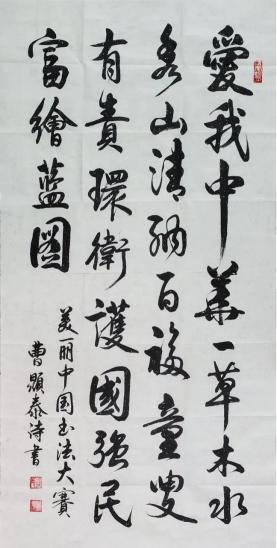 愛我中華一草木水
秀山清納百福童叟
有責環衛護國強民
富繪藍圖
美丽中国书法大賽
曹顯泰诗書